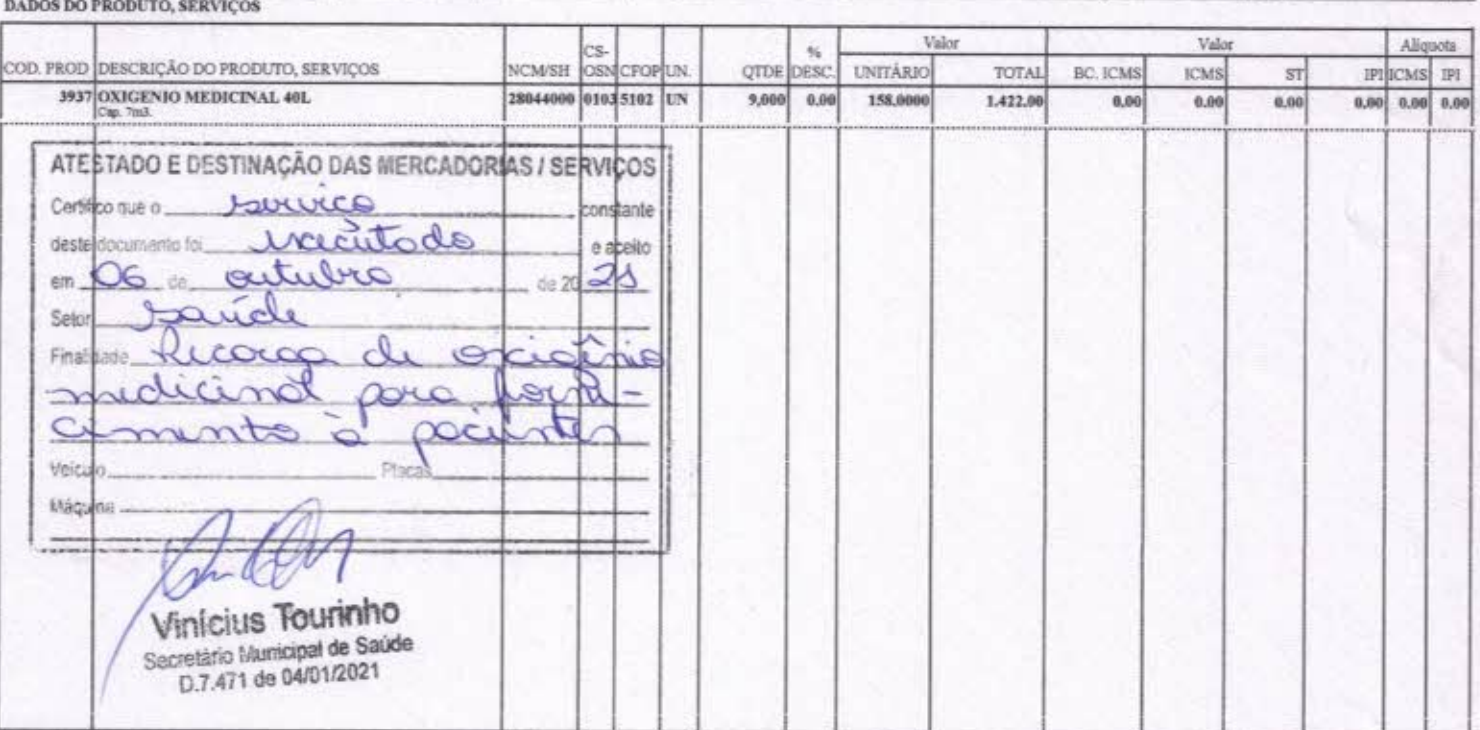 DADOS DO PRODUTO, SERVIÇOS
COD. PROD DESCRIÇÃO DO PRODUTO, SERVIÇOS NCM/SH CS-OSN CFOP UN. QTDE % DESC. Valor UNITÁRIO TOTAL Valor BC. ICMS ICMS ST IPI Alíquota ICMS IPI
3937 OXIGENIO MEDICINAL 40L 28044000 0103 5102 UN 9,000 0.00 158.0000 1.422.00 0.00 0.00 0.00 0.00 0.00 0.00
Cap. 7m3.
ATESTADO E DESTINAÇÃO DAS MERCADORIAS / SERVIÇOS
Certifico que o serviço constante
deste documento foi executado e aceito
em 06 de outubro de 2021
Setor saúde
Finalidade Recarga de oxigênio
medicinal para forne-
cimento à pacientes
Veículo Placas
Máquina
Vinícius Tourinho
Secretário Municipal de Saúde
D.7.471 de 04/01/2021